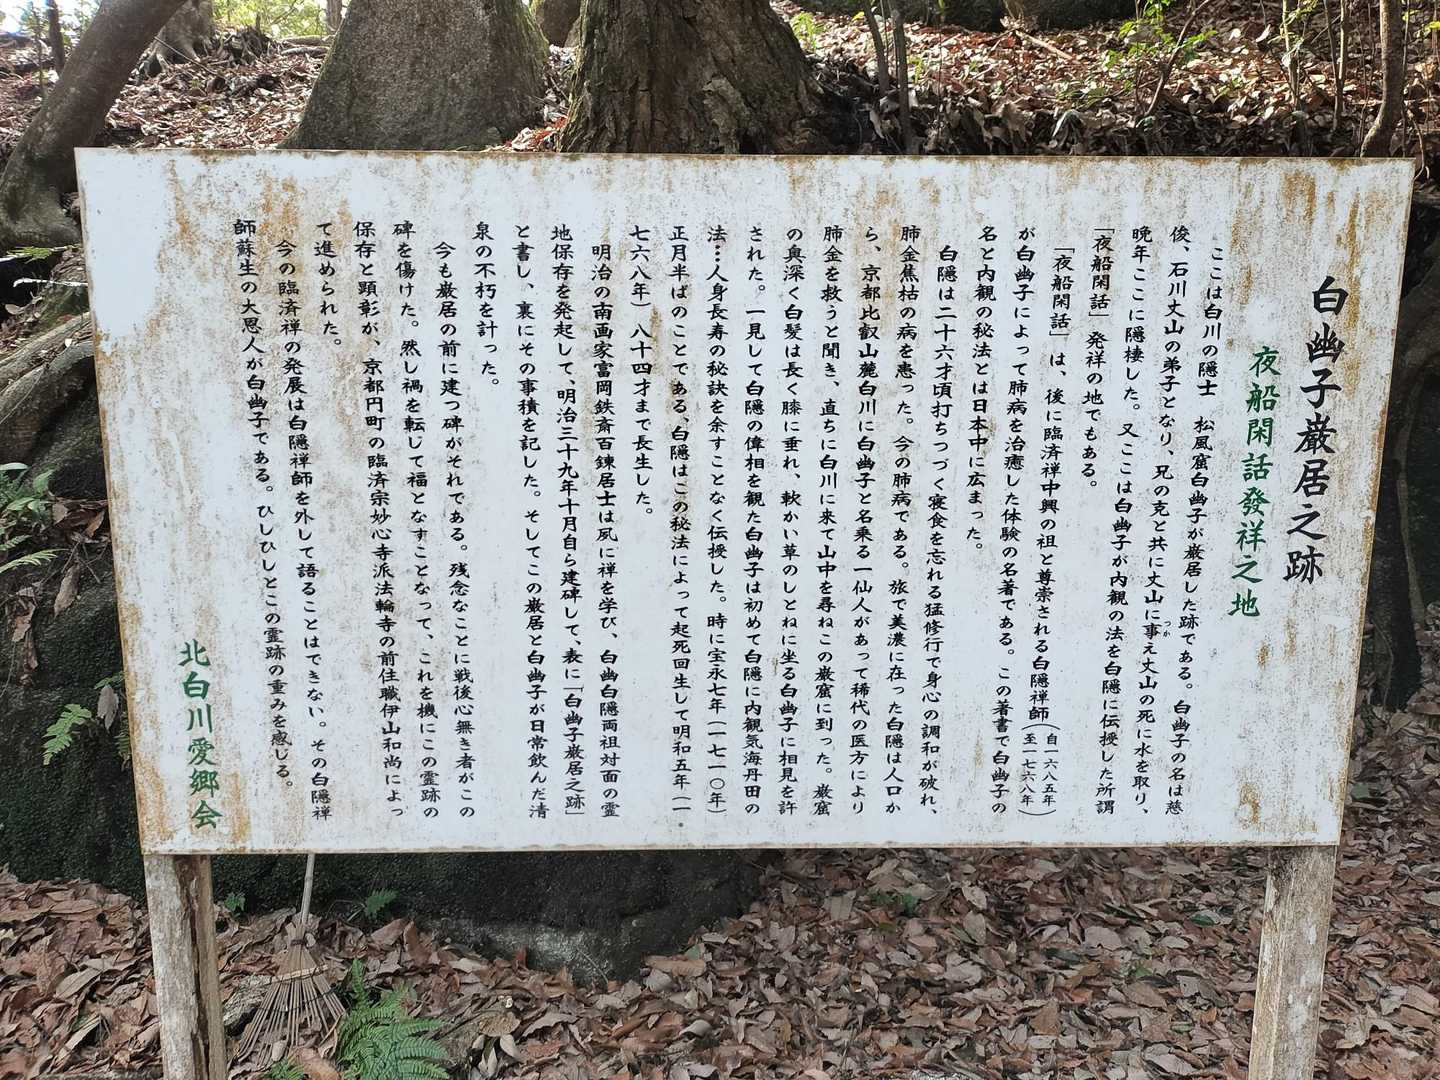 白幽子巌居之跡
夜船閑話發祥之地
ここは白川の隠士　松風窟白幽子が巌居した跡である。白幽子の名は慈
俊、石川丈山の弟子となり、兄の克と共に丈山に事え丈山の死に水を取り、
つか
晩年ここに隠棲した。又ここは白幽子が内観の法を白隠に伝授した所謂
「夜船閑話」発祥の地でもある。
「夜船閑話」は、後に臨済禅中興の祖と尊崇される白隠禅師(自一六八五年至一七六八年)
が白幽子によって肺病を治癒した体験の名著である。この著書で白幽子の
名と内観の秘法とは日本中に広まった。
白隠は二十六才頃打ちつづく寝食を忘れる猛修行で身心の調和が破れ、
肺金焦枯の病を患った。今の肺病である。旅で美濃に在った白隠は人口か
ら、京都比叡山麓白川に白幽子と名乗る一仙人があって稀代の医方により
肺金を救うと聞き、直ちに白川に来て山中を尋ねこの巌窟に到った。巌窟
の奥深く白髪は長く膝に垂れ、軟かい草のしとねに坐る白幽子に相見を許
された。一見して白隠の偉相を観た白幽子は初めて白隠に内観気海丹田の
法…人身長寿の秘訣を余すことなく伝授した。時に宝永七年(一七一〇年)
正月半ばのことである、白隠はこの秘法によって起死回生して明和五年(一
七六八年)八十四才まで長生した。
明治の南画家富岡鉄斎百錬居士は夙に禅を学び、白幽白隠両祖対面の霊
地保存を発起して、明治三十九年十月自ら建碑して、表に「白幽子巌居之跡」
と書し、裏にその事積を記した。そしてこの巌居と白幽子が日常飲んだ清
泉の不朽を計った。
今も巌居の前に建つ碑がそれである。残念なことに戦後心無き者がこの
碑を傷けた。然し禍を転じて福となすことなって、これを機にこの霊跡の
保存と顕彰が、京都円町の臨済宗妙心寺派法輪寺の前住職伊山和尚によっ
て進められた。
今の臨済禅の発展は白隠禅師を外して語ることはできない。その白隠禅
師蘇生の大恩人が白幽子である。ひしひしとこの霊跡の重みを感じる。
北白川愛郷会